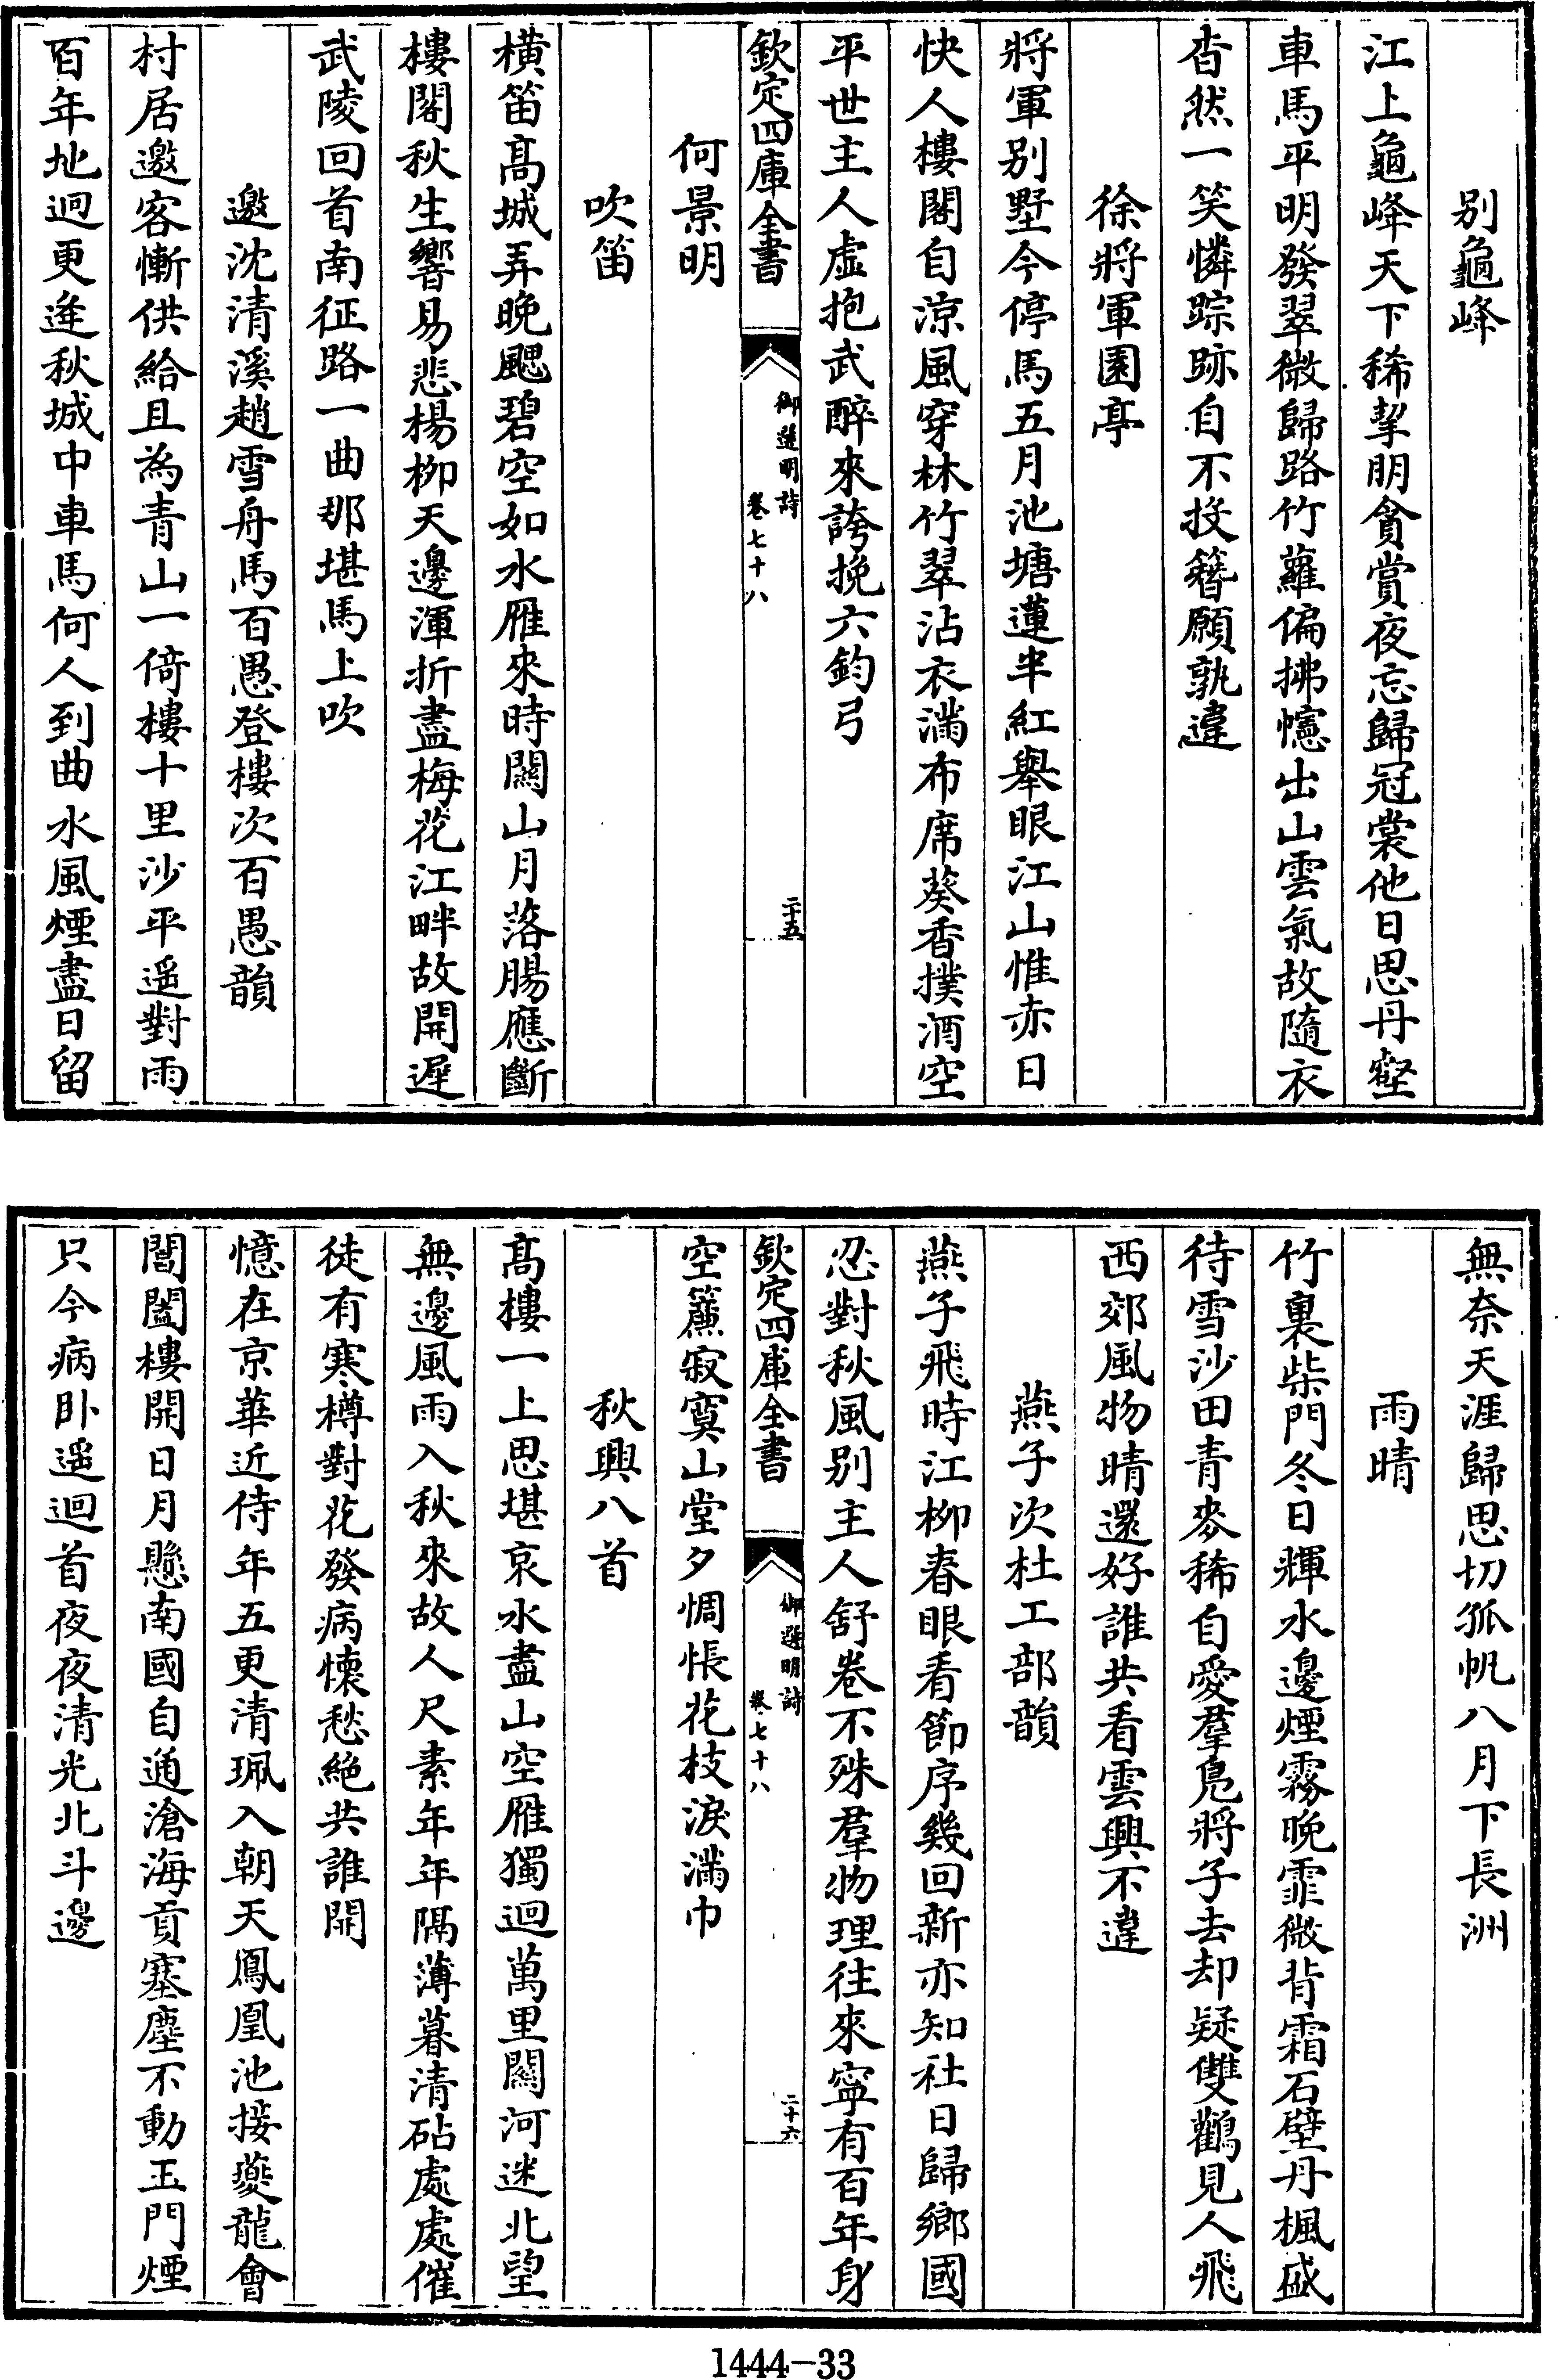 别龜峰
江上龜峰天下稀挈朋貪賞夜忘歸冠裳他日思丹壑
車馬平明發翠微歸路竹蘿偏拂幰出山雲氣故隨衣
杳然一笑憐踪跡自不投簪願孰違
徐將軍園亭
將軍别墅今停馬五月池塘蓮半紅舉眼江山惟赤日
快人樓閣自涼風穿林竹翠沾衣滿布席葵香撲酒空
平世主人虛抱武醉來誇挽六鈞弓
欽定四庫全書
御選明詩
卷七十八
二十五
何景明
吹笛
横笛髙城弄晚颸碧空如水雁來時闗山月落腸應斷
樓閣秋生響易悲楊柳天邊渾折盡梅花江畔故開遲
武陵回首南征路一曲那堪馬上吹
邀沈清溪趙雪舟馬百愚登樓次百愚韻
村居邀客慚供給且為青山一倚樓十里沙平遥對雨
百年地迥更逢秋城中車馬何人到曲水風煙盡日留
無奈天涯歸思切孤帆八月下長洲
雨晴
竹裏柴門冬日輝水邊煙霧晚霏微背霜石壁丹楓盛
待雪沙田青麥稀自愛羣鳬將子去却疑雙鸛見人飛
西郊風物晴還好誰共看雲興不違
燕子次杜工部韻
燕子飛時江柳春眼看節序幾回新亦知社日歸鄉國
忍對秋風别主人舒卷不殊羣物理往來寧有百年身
欽定四庫全書
御選明詩
卷七十八
二十六
空簾寂寞山堂夕惆悵花枝淚滿巾
秋興八首
髙樓一上思堪哀水盡山空雁獨迴萬里闗河迷北望
無邊風雨入秋來故人尺素年年隔薄暮清砧處處催
徒有寒樽對花發病懷愁絶共誰開
憶在京華近侍年五更清珮入朝天鳳凰池接夔龍會
閶闔樓開日月懸南國自通滄海貢塞塵不動玉門煙
只今病卧遥迴首夜夜清光北斗邊
1444-33